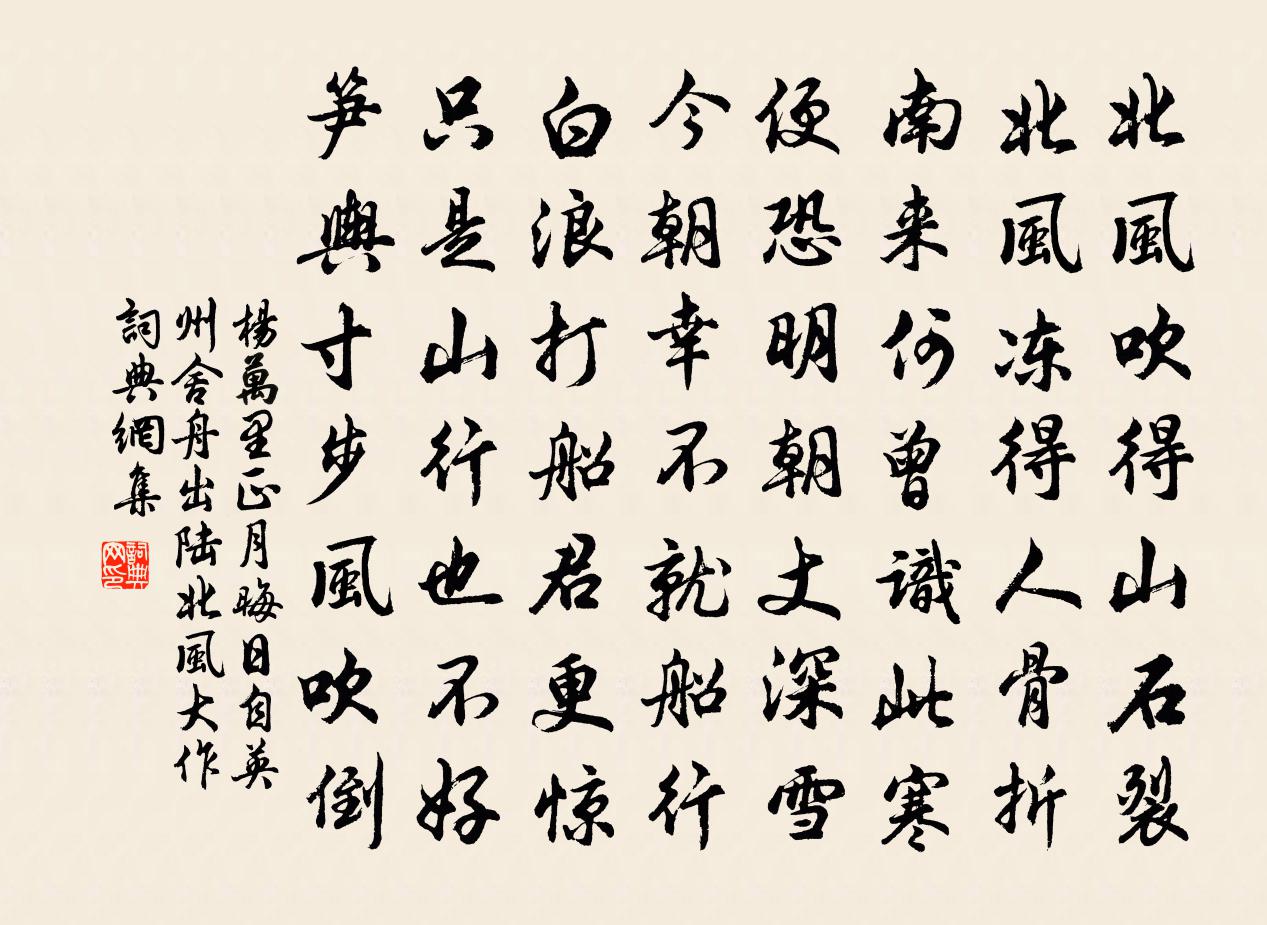 北風吹得山石裂
北風冻得人骨折
南来何曾識此寒
便恐明朝丈深雪
今朝幸不就船行
白浪打船君更惊
只是山行也不好
笋輿寸步風吹倒
楊萬里正月晦日自英
州舍舟出陆北風大作
詞典網集
詞典
网印